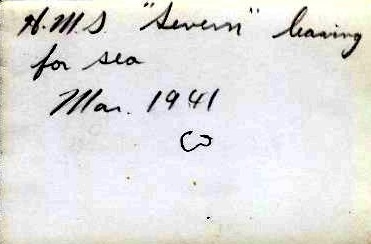 H.M.S "Severn" leaving
for sea
Mar. 1941